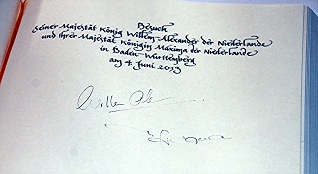 Besuch
Seiner Majestät König Willem-Alexander der Niederlande
und Ihrer Majestät Königin Máxima der Niederlande
in Baden-Württemberg
am 4. Juni 2013
Willem